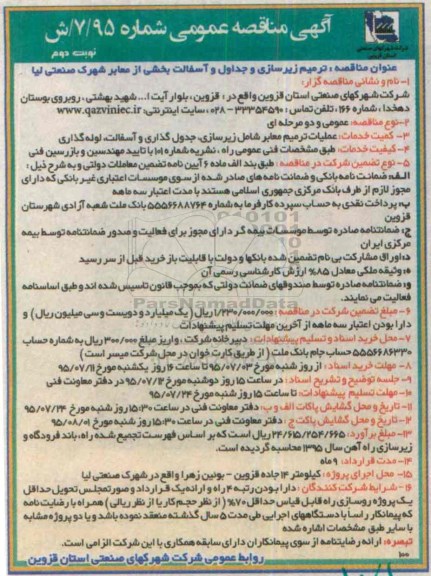 آگهی مناقصه عمومی شماره ۷/۹۵/ش
نوبت دوم
شرکت شهرکهای صنعتی
استان قزوین
عنوان مناقصه : ترمیم زیرسازی و جداول و آسفالت بخشی از معابر شهرک صنعتی لیا
۱- نام و نشانی مناقصه گزار:
شرکت شهرکهای صنعتی استان قزوین واقع در : قزوین ، بلوار آیت ا... شهید بهشتی ، روبروی بوستان
دهخدا ، شماره ۱۶۶ ، تلفن تماس : ۳۳۳۵۴۵۹۰ - ۰۲۸ ، سایت اینترنتی: www.qazviniec.ir
۲-نوع مناقصه: عمومی و دو مرحله ای
۳- کمیت خدمات: عملیات ترمیم معابر شامل زیرسازی، جدول گذاری و آسفالت، لوله گذاری
۴- کیفیت خدمات: طبق مشخصات فنی عمومی راه ، نشریه شماره ۱۰۱ با تایید مهندسین و بازرسین فنی
۵- نوع تضمین شرکت در مناقصه: طبق بند الف ماده ۶ آیین نامه تضمین معاملات دولتی و به شرح ذیل :
الف: ضمانت نامه بانکی و ضمانت نامه های صادر شده از سوی موسسات اعتباری غیر بانکی که دارای
مجوز لازم از طرف بانک مرکزی جمهوری اسلامی هستند با مدت اعتبار سه ماهه
ب: پرداخت نقدی به حساب سپرده کارفرما به شماره ۵۵۵۶۶۸۸۷۶۴ بانک ملت شعبه آزادی شهرستان
قزوین
ج: ضمانتنامه صادره توسط موسسات بیمه گر دارای مجوز برای فعالیت و صدور ضمانتنامه توسط بیمه
مرکزی ایران
د: اوراق مشارکت بی نام تضمین شده بانکها و دولت با قابلیت باز خرید قبل از سر رسید
ه: وثیقه ملکی معادل ۸۵% ارزش کارشناسی رسمی آن
و: ضمانتنامه صادره توسط صندوقهای ضمانت دولتی که بموجب قانون تاسیس شده اند و طبق اساسنامه
فعالیت می نمایند.
۶- مبلغ تضمین شرکت در مناقصه : ۱/۲۳۰/۰۰۰/۰۰۰ ریال ( یک میلیارد و دویست و سی میلیون ریال ) و
دارا بودن اعتبار سه ماهه از آخرین مهلت تسلیم پیشنهادات
۷- محل خرید اسناد و تسلیم پیشنهادات: دبیرخانه شرکت ، واریز مبلغ ۳۰۰/۰۰۰ ریال به شماره حساب
۵۵۵۶۶۸۶۳۳۰ حساب جام بانک ملت ( از طریق کارت خوان در محل شرکت میسر است )
۸- مهلت خرید اسناد : از روز شنبه مورخ ۹۵/۰۷/۰۳ تا ساعت ۱۶ روز یکشنبه مورخ ۹۵/۰۷/۱۱
۹- جلسه توضیح و تشریح اسناد : در ساعت ۱۵ روز دوشنبه مورخ ۹۵/۰۷/۱۲ در دفتر معاونت فنی
۱۰- مهلت تسلیم پیشنهادات: تا ساعت ۱۵ روز شنبه مورخ ۹۵/۰۷/۲۴
۱۱- تاریخ و محل گشایش پاکات الف و ب: دفتر معاونت فنی در ساعت ۱۵:۳۰ روز شنبه مورخ ۹۵/۰۷/۲۴
۱۲- تاریخ و محل گشایش پاکت ج : دفتر معاونت فنی در ساعت ۱۵:۳۰ روز شنبه مورخ ۹۵/۰۸/۰۱
۱۳- مبلغ برآورد: ۲۴/۶۱۵/۲۵۴/۶۶۵ ریال است که بر اساس فهرست تجمیع شده راه، باند فرودگاه و
زیرسازی راه آهن سال ۱۳۹۵ محاسبه گردیده است.
۱۴- مدت قرارداد: ۹ ماه
۱۵- محل اجرای پروژه: کیلومتر ۱۴ جاده قزوین - بوئین زهرا واقع در شهرک صنعتی لیا
۱۶- شرایط شرکت کنندگان : دارا بودن رتبه ۴ راه و ارائه یک قرارداد و صورتمجلس تحویل حداقل
یک پروژه روسازی راه قابل قیاس حداقل ۷۰% ( از نظر حجم کار یا از نظر ریالی ) همراه با رضایت نامه
که پیمانکار راسا با دستگاههای اجرایی طی مدت ۵ سال گذشته منعقد نموده باشد و یا دو پروژه مشابه
با سایر طبق مشخصات اشاره شده
تبصره: ارائه رضایتنامه از سوی پیمانکاران دارای سابقه همکاری با این شرکت الزامی است.
۱۰۰
روابط عمومی شرکت شهرکهای صنعتی استان قزوین
ParsNamadData